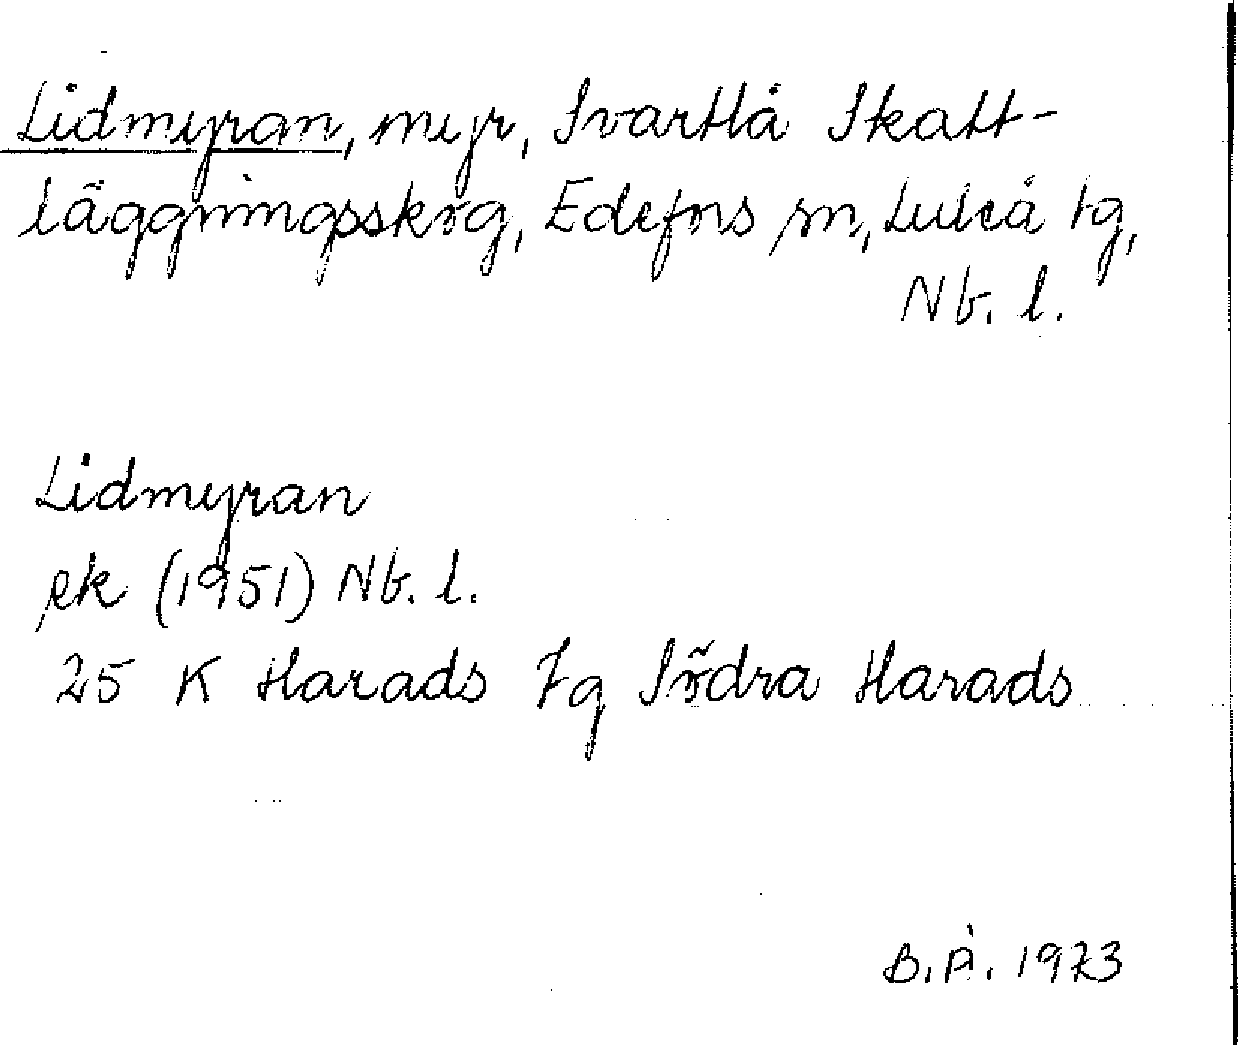 Lidmyran, myr, Svartlå Skatt-
läggningsskog, Edefors sn, Luleå tg,
Nb. l.
Lidmyran
ek (1951) Nb. l.
25 K Harads Fg Södra Harads
B.Å. 1973